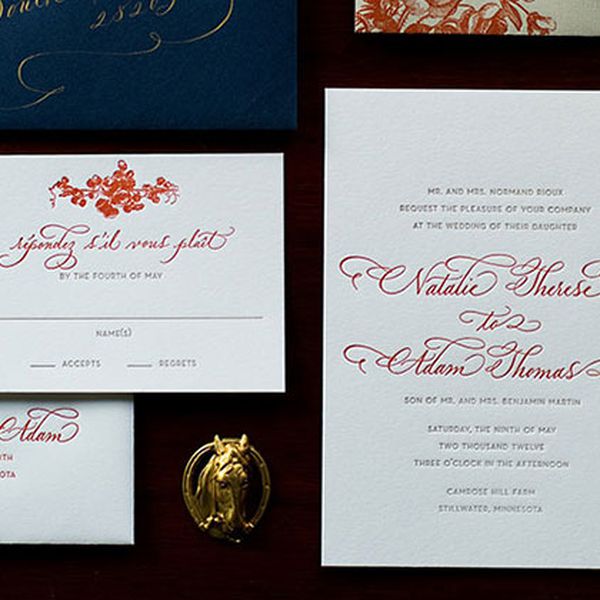 28205
répondez s'il vous plaît
BY THE FOURTH OF MAY
NAME(S)
ACCEPTS REGRETS
Adam
SOTA
MR. AND MRS. NORMAND RIOUX
REQUEST THE PLEASURE OF YOUR COMPANY
AT THE WEDDING OF THEIR DAUGHTER
Natalie Therese
to
Adam Thomas
SON OF MR. AND MRS. BENJAMIN MARTIN
SATURDAY, THE NINTH OF MAY
TWO THOUSAND TWELVE
THREE O'CLOCK IN THE AFTERNOON
CAMROSE HILL FARM
STILLWATER, MINNESOTA